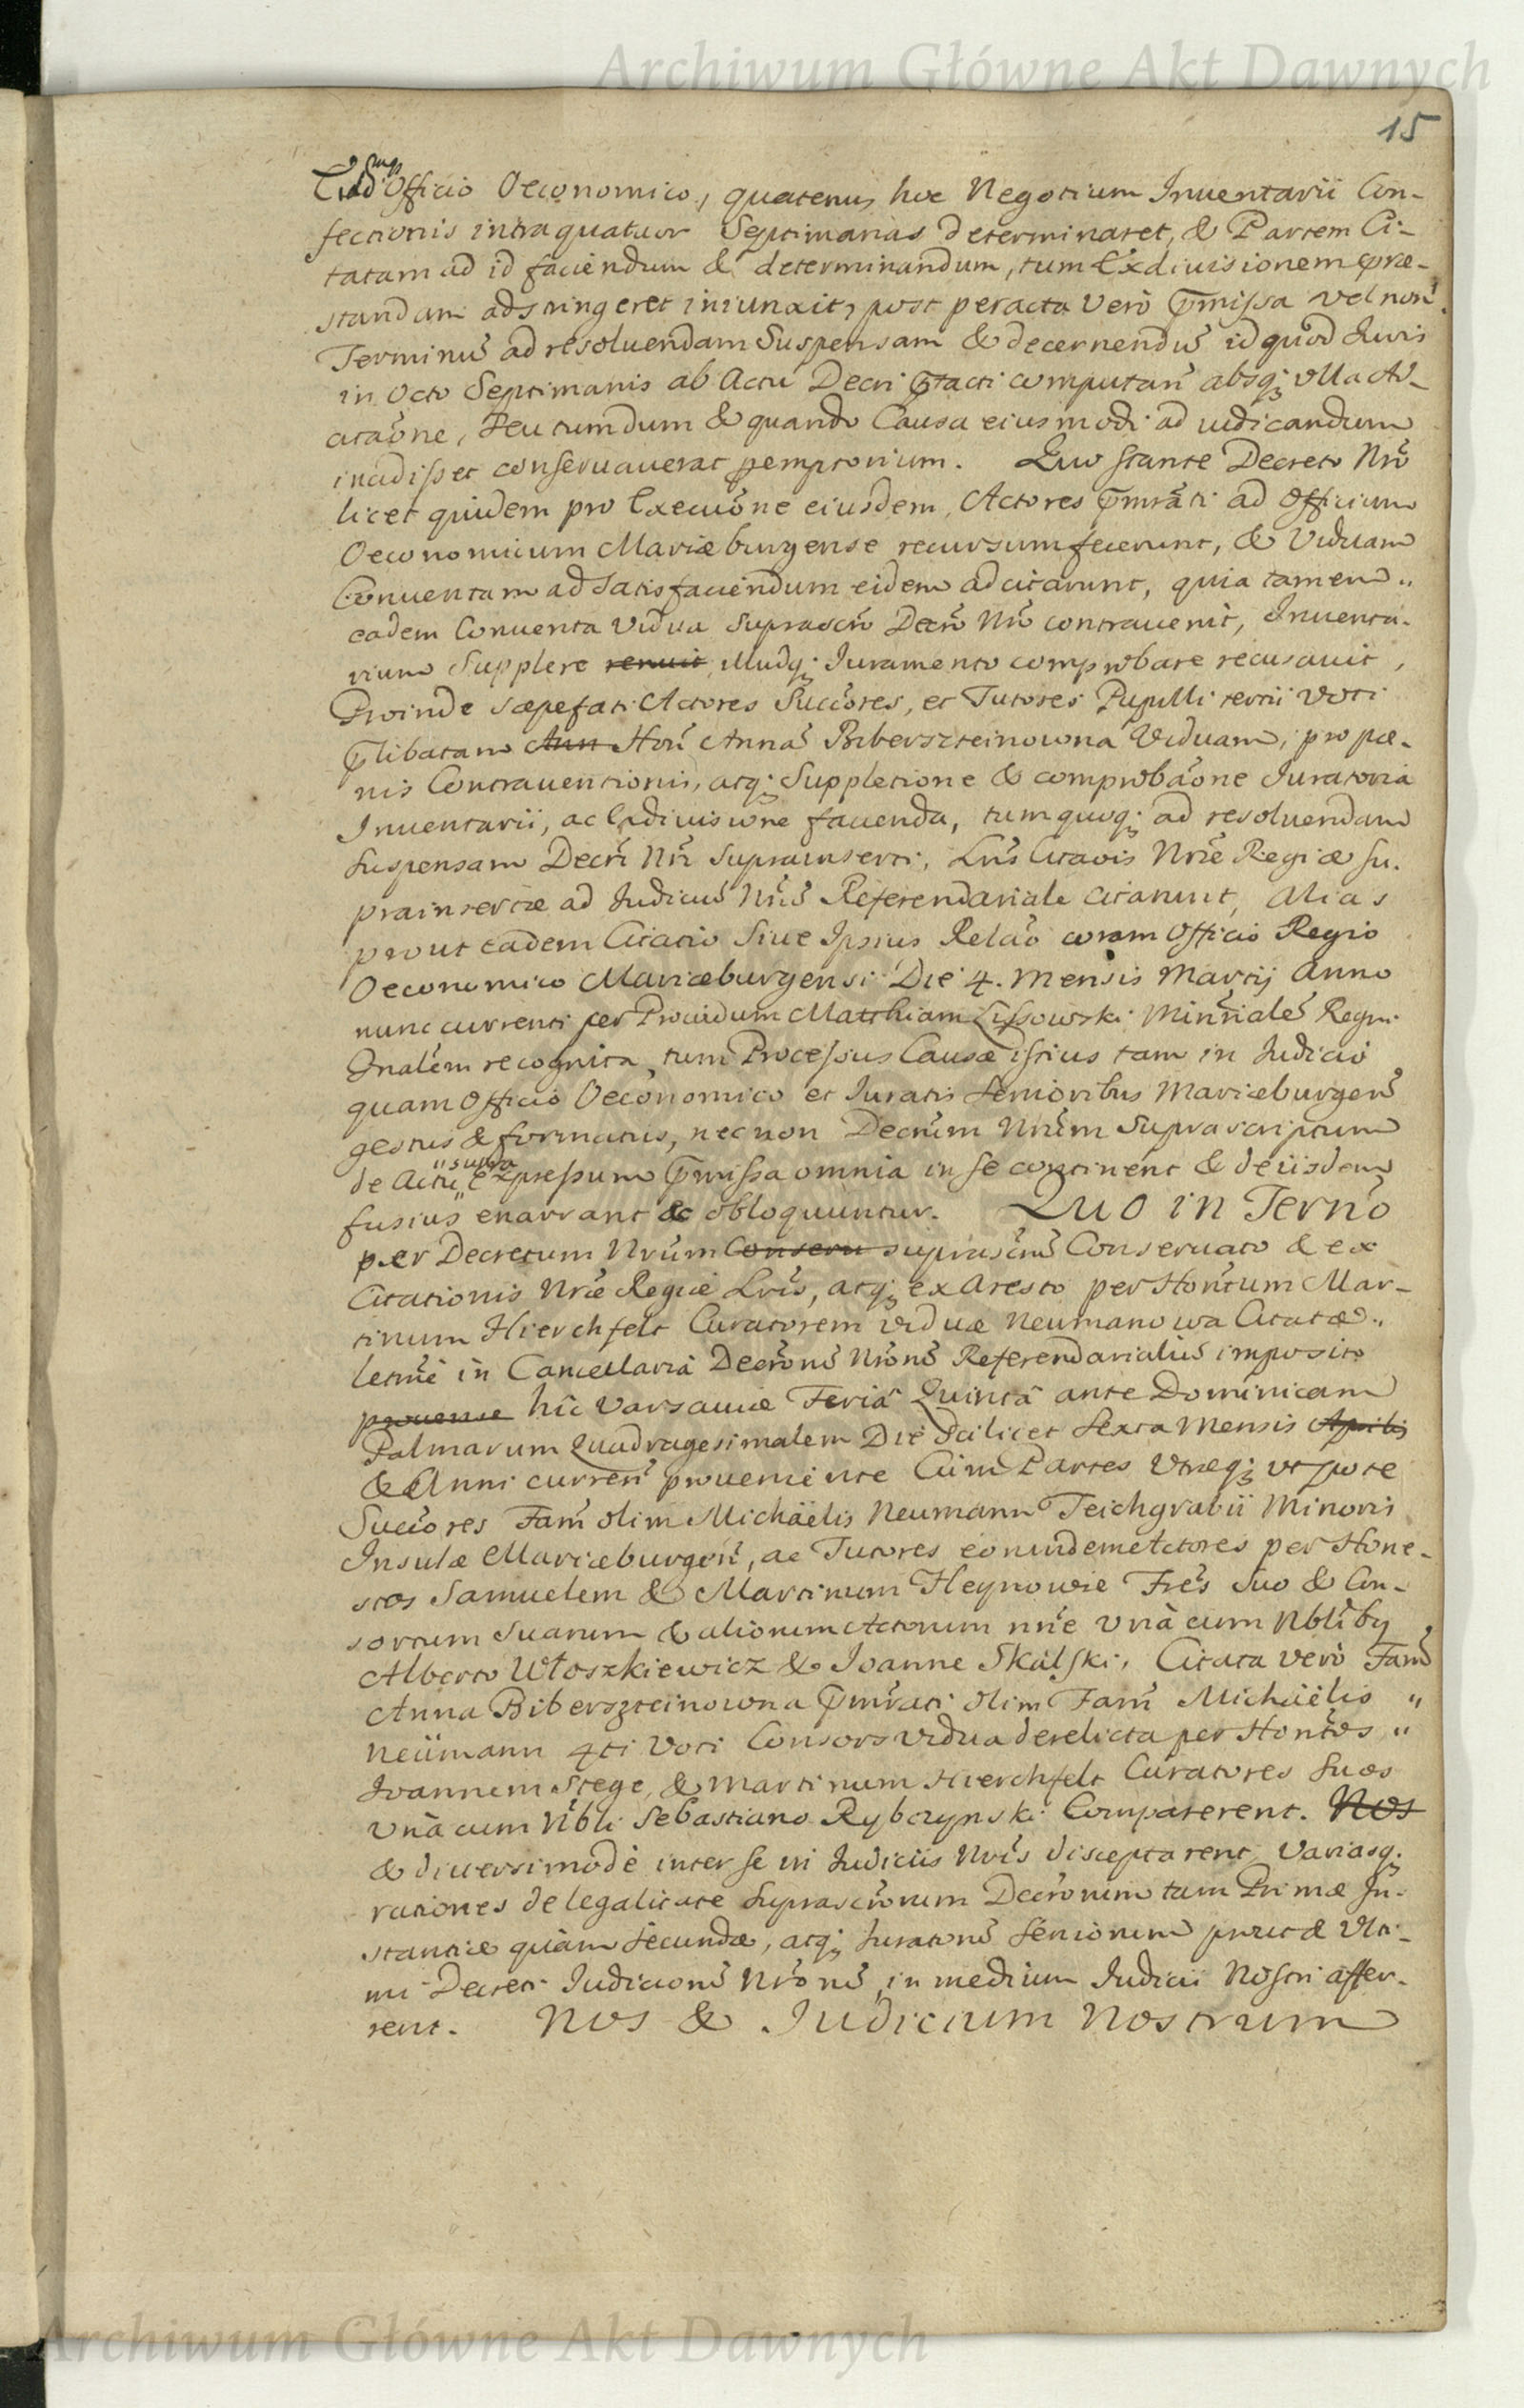 Archiwum Główne Akt Dawnych
15
Officio Oeconomico, quatenus hoc Negotium Inventarii Con-
fectionis intra quatuor Septimanas determinaret, & Partem Ci-
tatam ad id faciendum & determinandum, tum Exdiuisionem præ-
standam adstringeret iniunxit, post peracta verò p̄missa vel non
Terminũ ad resoluendam Suspensam & decernendũ id quod Iuris
in Octo Septimanis ab Actu Decri p̄tacti computan̄ absq; vlla Ad-
ataõne, seu tumdum & quando Causa eiusmodi ad iudicandum
incidisset conseruauerat pemptorium. Quo stante Decreto Nrõ
licet quidem pro Executõne eiusdem, Actores p̄mrãti ad Officium
Oeconomicum Mariæburgense recursum fecerunt, & Viduam
Conuentam ad satisfaciendum eidem adcitarunt, quia tamen „
eadem Conuenta Vidua suprascr̃o Decr̃o Nrõ contrauenit, Inuenta-
rium Supplere renuit, illudq; Iuramento comprobare recusauit,
Proinde sæpefati Actores Succ̃ores, et Tutores Pupilli tertii voti
p̄libatam Ann Hon̄ Annã Biberszteinowna Viduam, pro pæ-
nis Contrauentionis, atq; Suppletione & comprobãone Iuratoria
Inuentarii, ac Exdiuisione facienda, tum quoq; ad resoluendam
suspensam Decr̃i Nrĩ suprainserti, Lris̃ Citaõis Nrẽ Regiæ su-
prainsertæ ad Iudiciũ Nrũ Referendariale citarunt, Alias
prout eadem Citatio siue Ipsius Relaõ coram Officio Regio
Oeconomico Mariæburgensi Die 4. Mensis Martij Anno
nunc currenti per Prouidum Matthiam Lissowski Ministr̃ialẽ Regni
Gnal̃em recognita, tum Processus Causæ istius tam in Iudicio
quam Officio Oeconomico et Iuratis Senioribus Mariæburgen̄
gestus & formatus, nec non Decr̃um Nrũm Suprascriptum
de Actu „supra expressum p̄missa omnia in se continent & de iisdem
fusius enarrant & obloquuntur. Quo in Terno
per Decretum Nrũm Conseru suprascr̃ũ Conseruato & ex
Citationis Nrẽ Regiæ Lris̃, atq; ex Aresto per Hon̄tum Mar-
tinum Hierchfelt Curatorem viduæ Neumanowa Citatæ „
letmẽ in Cancellaria Decr̃onũ Nrõnũ Referendarialiũ imposito
prouense hîc Varsauiæ Feriâ Quintâ ante Dominicam
Palmarum Quadragesimalem Die scilicet sexta Mensis Aprilis
& Anni curren̄ proueniente Cùm Partes Vtræq; vtpote
Succ̃ores Fam̃ olim Michäelis Neumann Teichgrabii Minoris
Insulæ Mariæburgen̄, ac Tutores eorundem Actores per Hone-
stos Samuelem & Martinum Heynowie Frẽs suo & Con-
sortum suarum & aliorum Actorum nnẽ vnà cum Nbli᷈by
Alberto Włoszkiewicz & Ioanne Skalski, Citata verò Fam̃
Anna Biberszteinowna p̄mrãti olim Fam̃ Michäelis „
Neümann 4ti Voti Consors vidua derelicta per Hon̄tos „
Ioannem Stege, & Martinum Hierchfelt Curatores suos
vnà cum Nbli Sebastiano Rybczynski Comparerent. Nos
& diuersimodè inter se in Iudiciis Nrĩs disceptarent, Variasq;
rationes de legalitate suprascr̃orum Decr̃orum tam Primæ In-
stantiæ quàm secundæ, atq; Iuratorũ seniorum prout & vlti-
mi Decreti Iudiciorũ Nrõnũ, in medium Iudicii Nostri affer-
rent. Nos & Iudicium Nostrum
Archiwum Główne Akt Dawnych